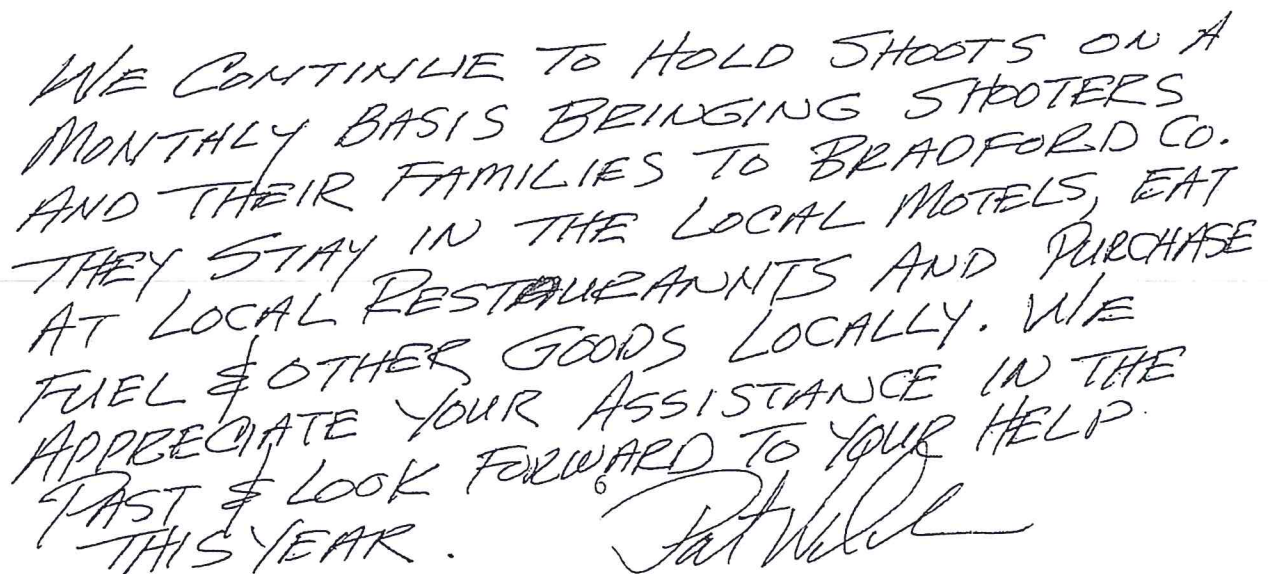 WE CONTINUE TO HOLD SHOOTS ON A
MONTHLY BASIS BRINGING SHOOTERS
AND THEIR FAMILIES TO BRADFORD CO.
THEY STAY IN THE LOCAL MOTELS, EAT
AT LOCAL RESTAURANNTS AND PURCHASE
FUEL & OTHER GOODS LOCALLY. WE
APPRECIATE YOUR ASSISTANCE IN THE
PAST & LOOK FORWARD TO YOUR HELP
THIS YEAR.
Pat